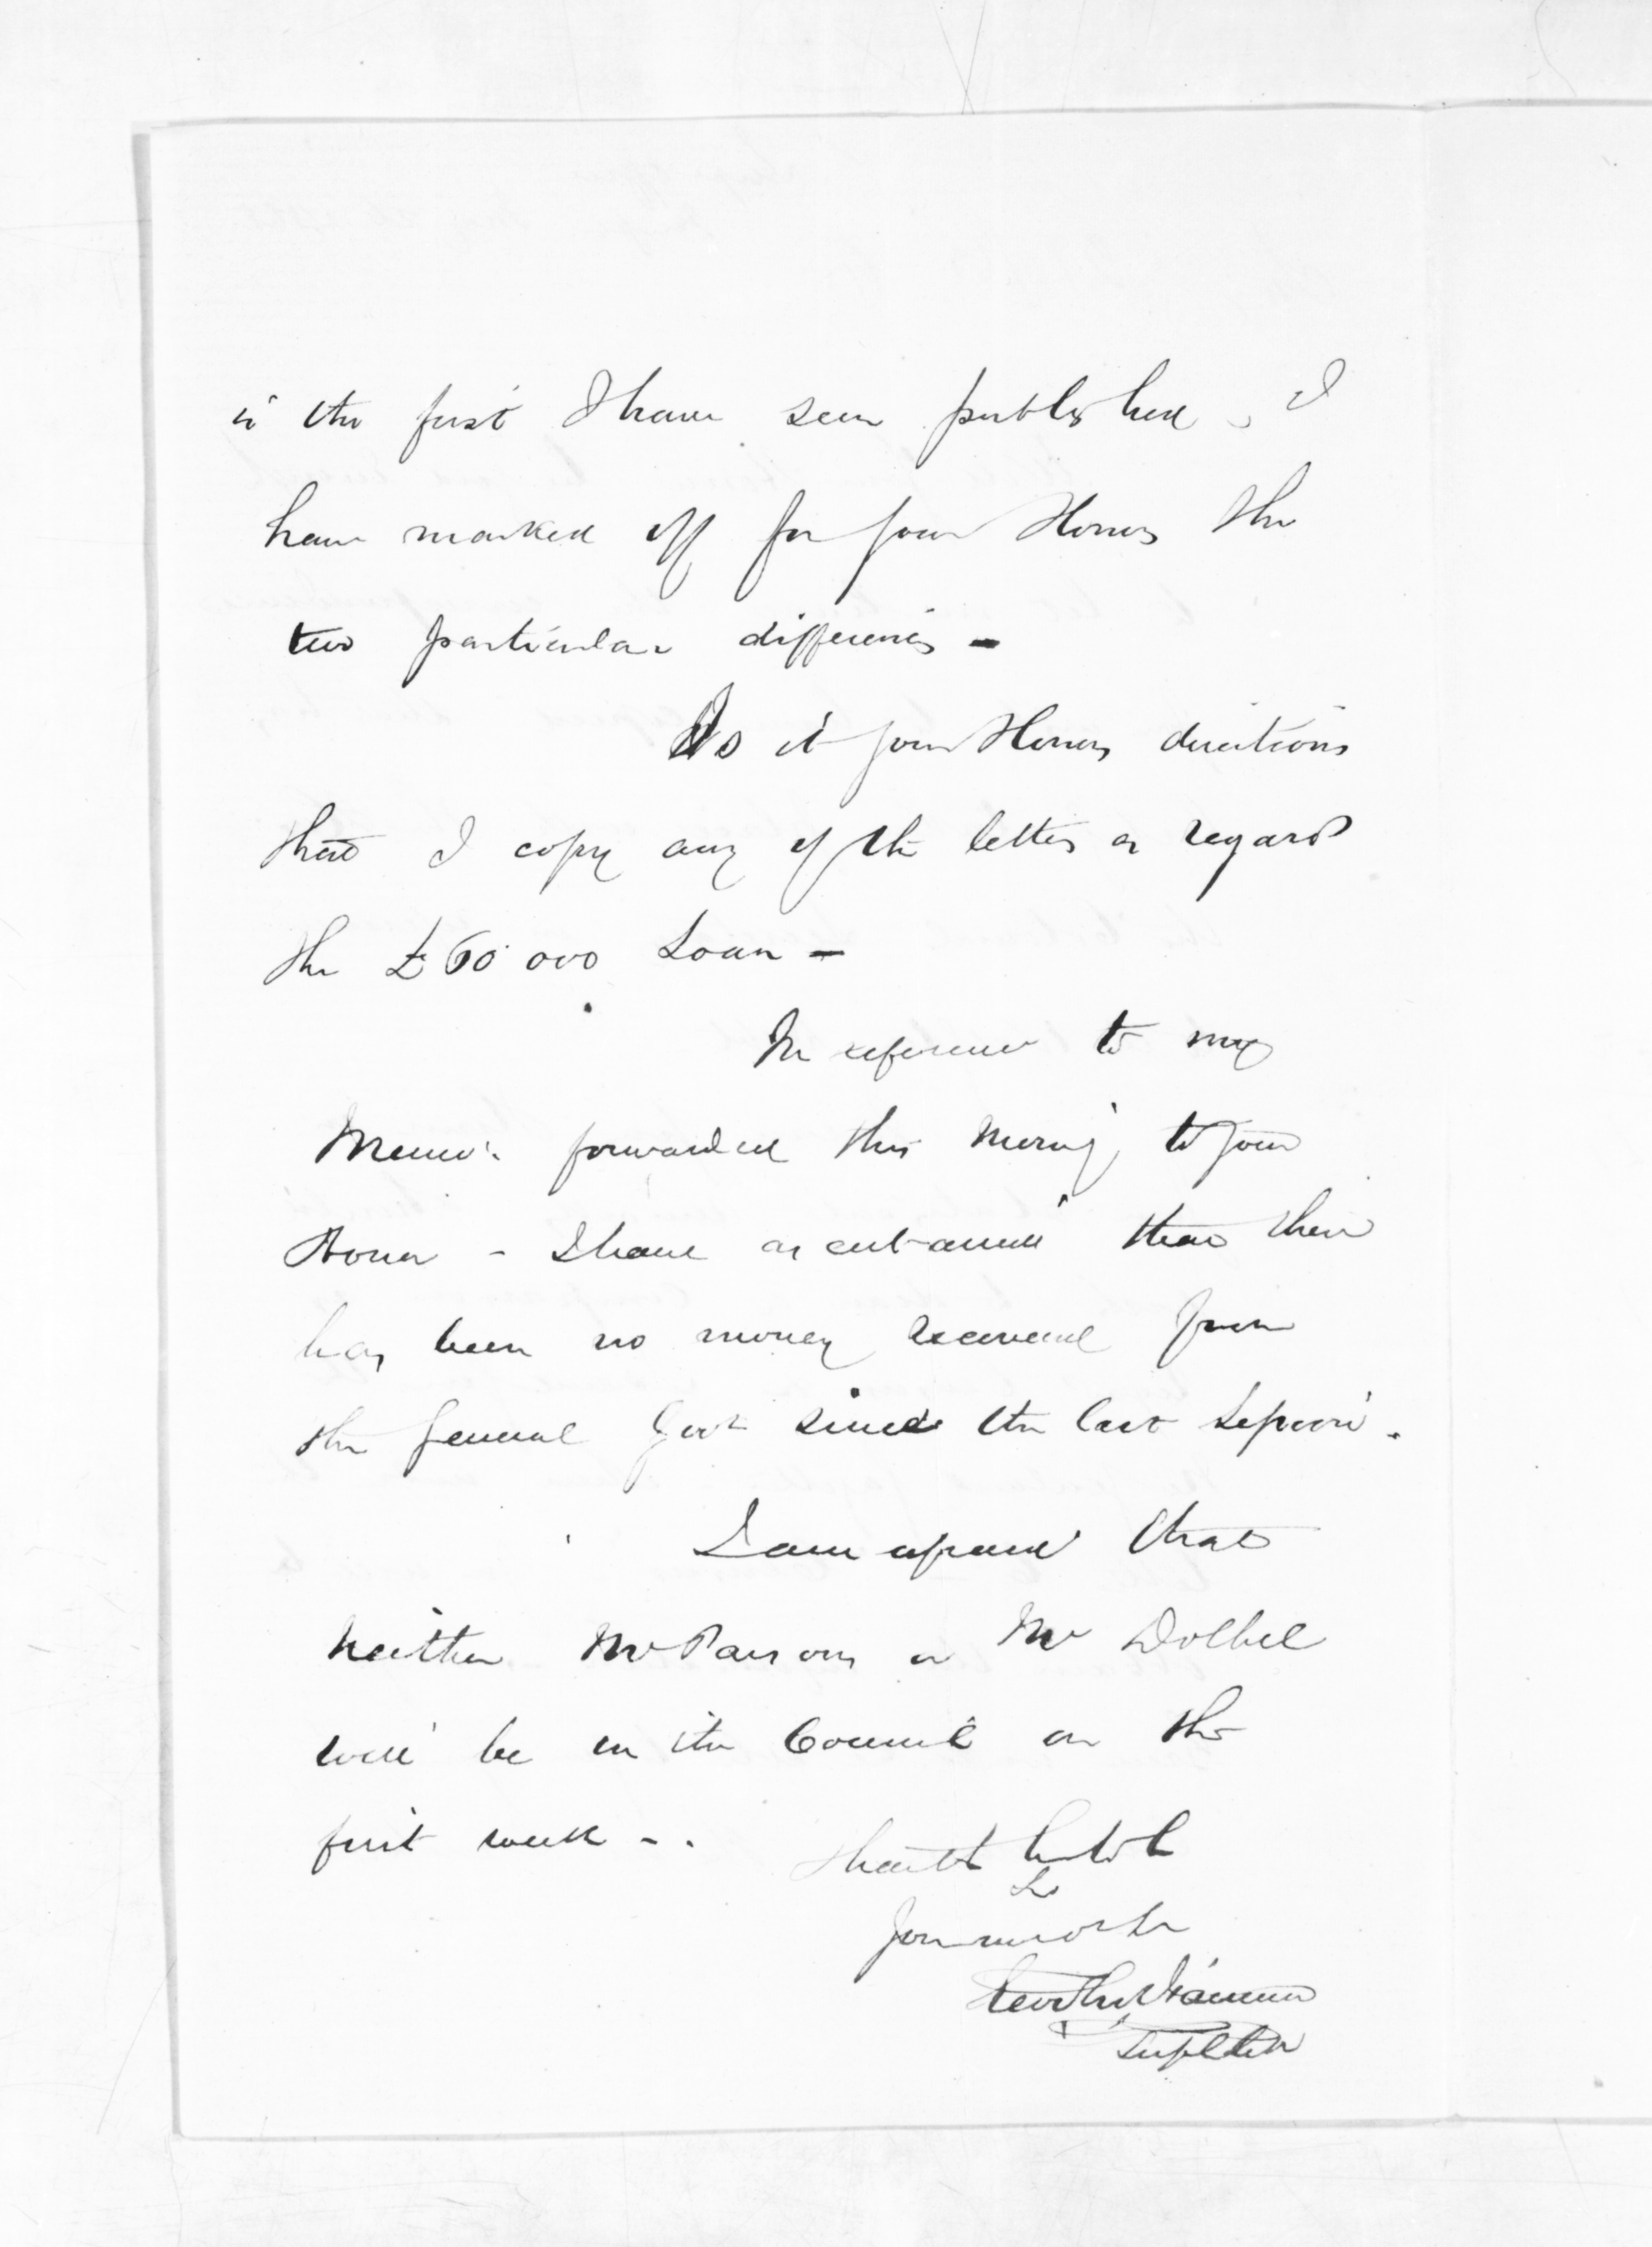 is the first I have seen published, I
have marked off for your Honor the
two particular differences -
Is it your Honors directions
that I copy any of the letters as regards
the £60 000 Loan -
In reference to my
Memo. forwarded this morng to your
Honor - I have ascertained that there
has been no money received from
the General Govt since the last deposit.
I am afraid that
neither Mr Parsons or Mr Dolbel
will be in the Council on the
first week -.
I have the
Your